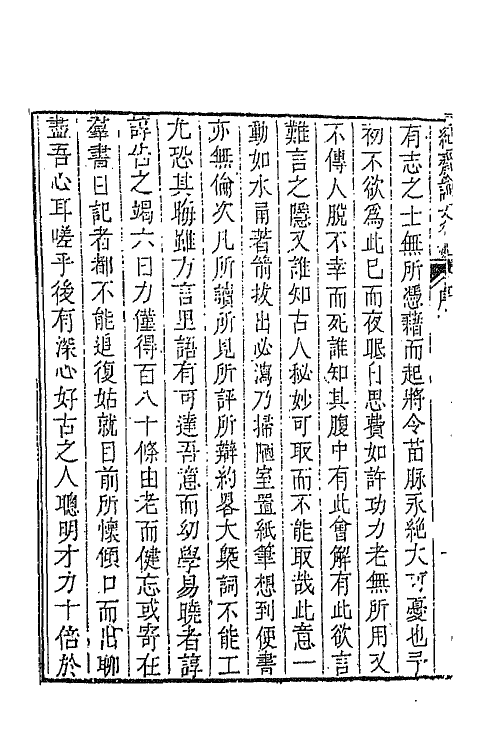 有志之士無所憑藉而起將令苗脉永絕大可憂也予
初不欲為此已而夜眠自思費如許功力老無所用又
不傳人脫不幸而死誰知其腹中有此會解有此欲言
難言之隱又誰知古人秘妙可取而不能取哉此意一
動如水甬著箭拔出必瀉乃掃陋室置紙筆想到便書
亦無倫次凡所讀所見所評所辯約畧大槩詞不能工
尤恐其晦雖方言里語有可達吾意而幼學易曉者諄
諄告之竭六日力僅得百八十條由老而健忘或寄在
羣書日記者都不能追復姑就目前所懷傾口而出聊
盡吾心耳嗟乎後有深心好古之人聰明才力十倍於